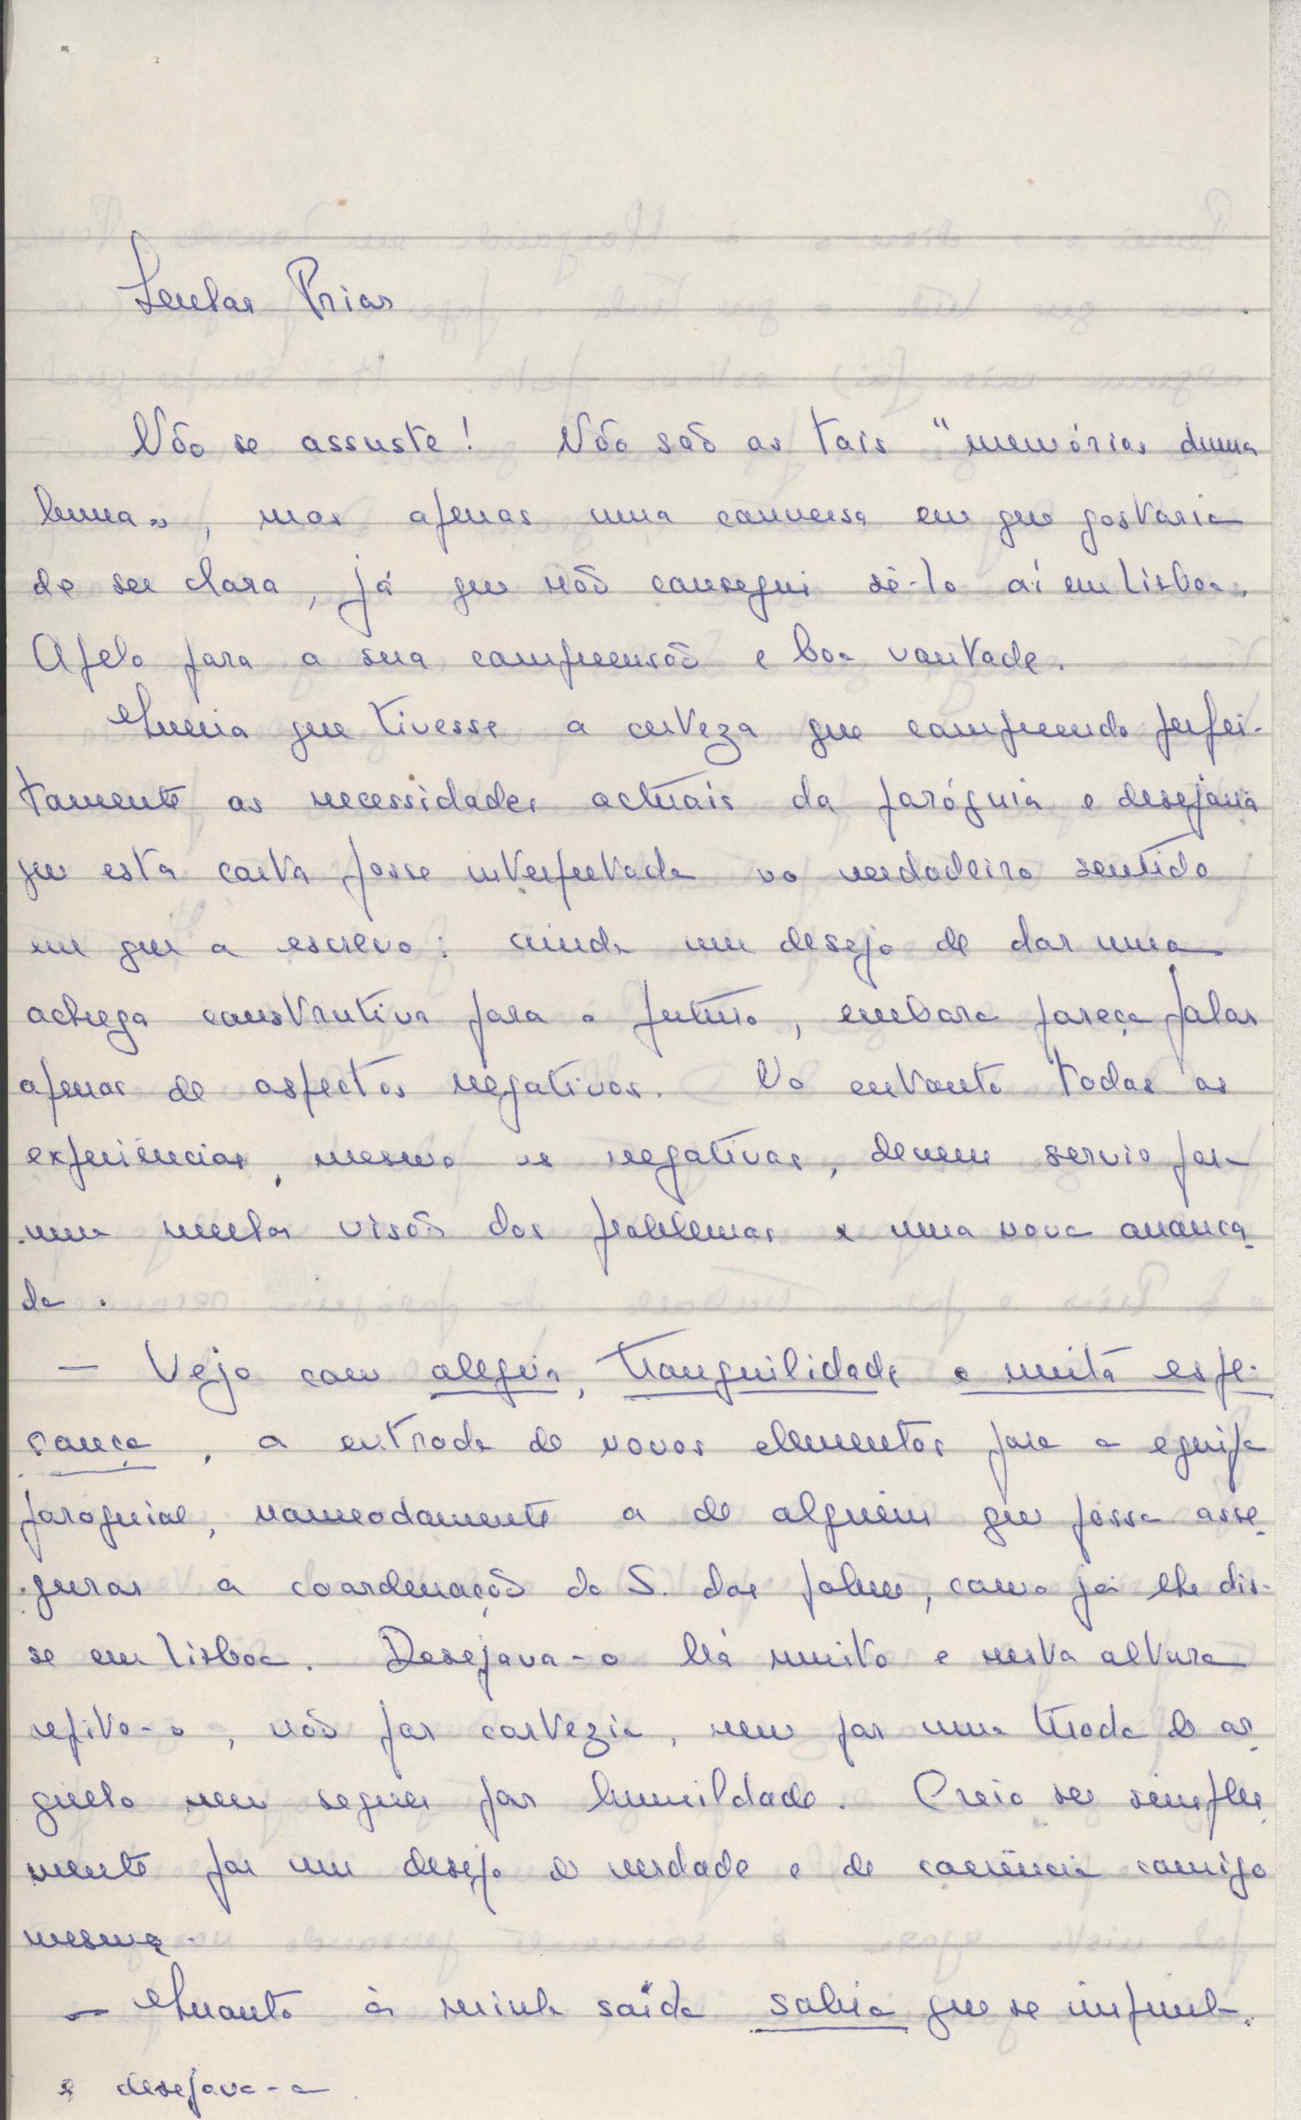 Senhor Prior
Não se assuste! Não são as tais "memórias duma
burra", mas apenas uma conversa em que gostaria
de ser clara, já que não consegui sê-lo aí em Lisboa.
Apelo para a sua compreensão e boa vontade.
Queria que tivesse a certeza que compreendo perfei-
tamente as necessidades actuais da paróquia e desejaria
que esta carta fosse interpretada no verdadeiro sentido
em que a escrevo: ainda um desejo de dar uma
achega construtiva para o futuro, embora pareça falar
apenas de aspectos negativos. No entanto todas as
experiências, mesmo as negativas, devem servir para
uma melhor visão dos problemas e uma nova arranca-
da.
— Vejo com alegria, tranquilidade e muita espe-
rança, a entrada de novos elementos para a equipa
paroquial, nomeadamente a de alguém que possa asse-
gurar a coordenação do S. dos Pobres, como já lhe dis-
se em Lisboa. Desejava-o há muito e nesta altura
repito-o, não por cortezia, nem por uma tirada de or-
gulho nem sequer por humildade. Creio ser simples-
mente por um desejo de verdade e de coerência comigo
mesma.
— Quanto à minha saída sabia que se impunha
e desejava-a